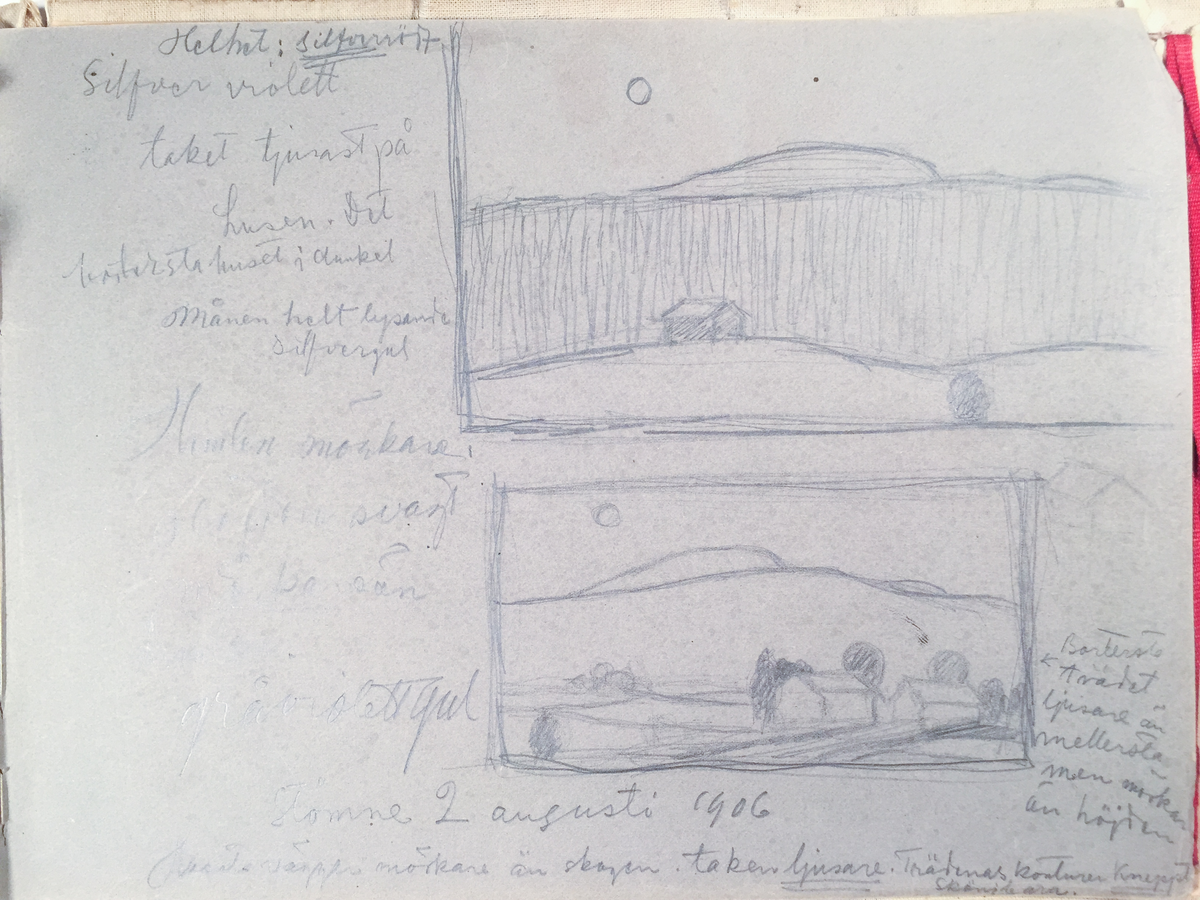 Helhet: silfverrödt
Silfver violett
taket ljusast på
husen. Det
bortersta huset i dunkel
Månen helt lysande
silfvergul
Himlen mörkare
svagt
än
gråviolettgul
Bortersta
trädet
ljusare än
mellersta
men mörkare
än höjden
Tömne 2 augusti 1906
mörkare än skogen. taken ljusare. Trädenas konturer knappt
skönjbara.